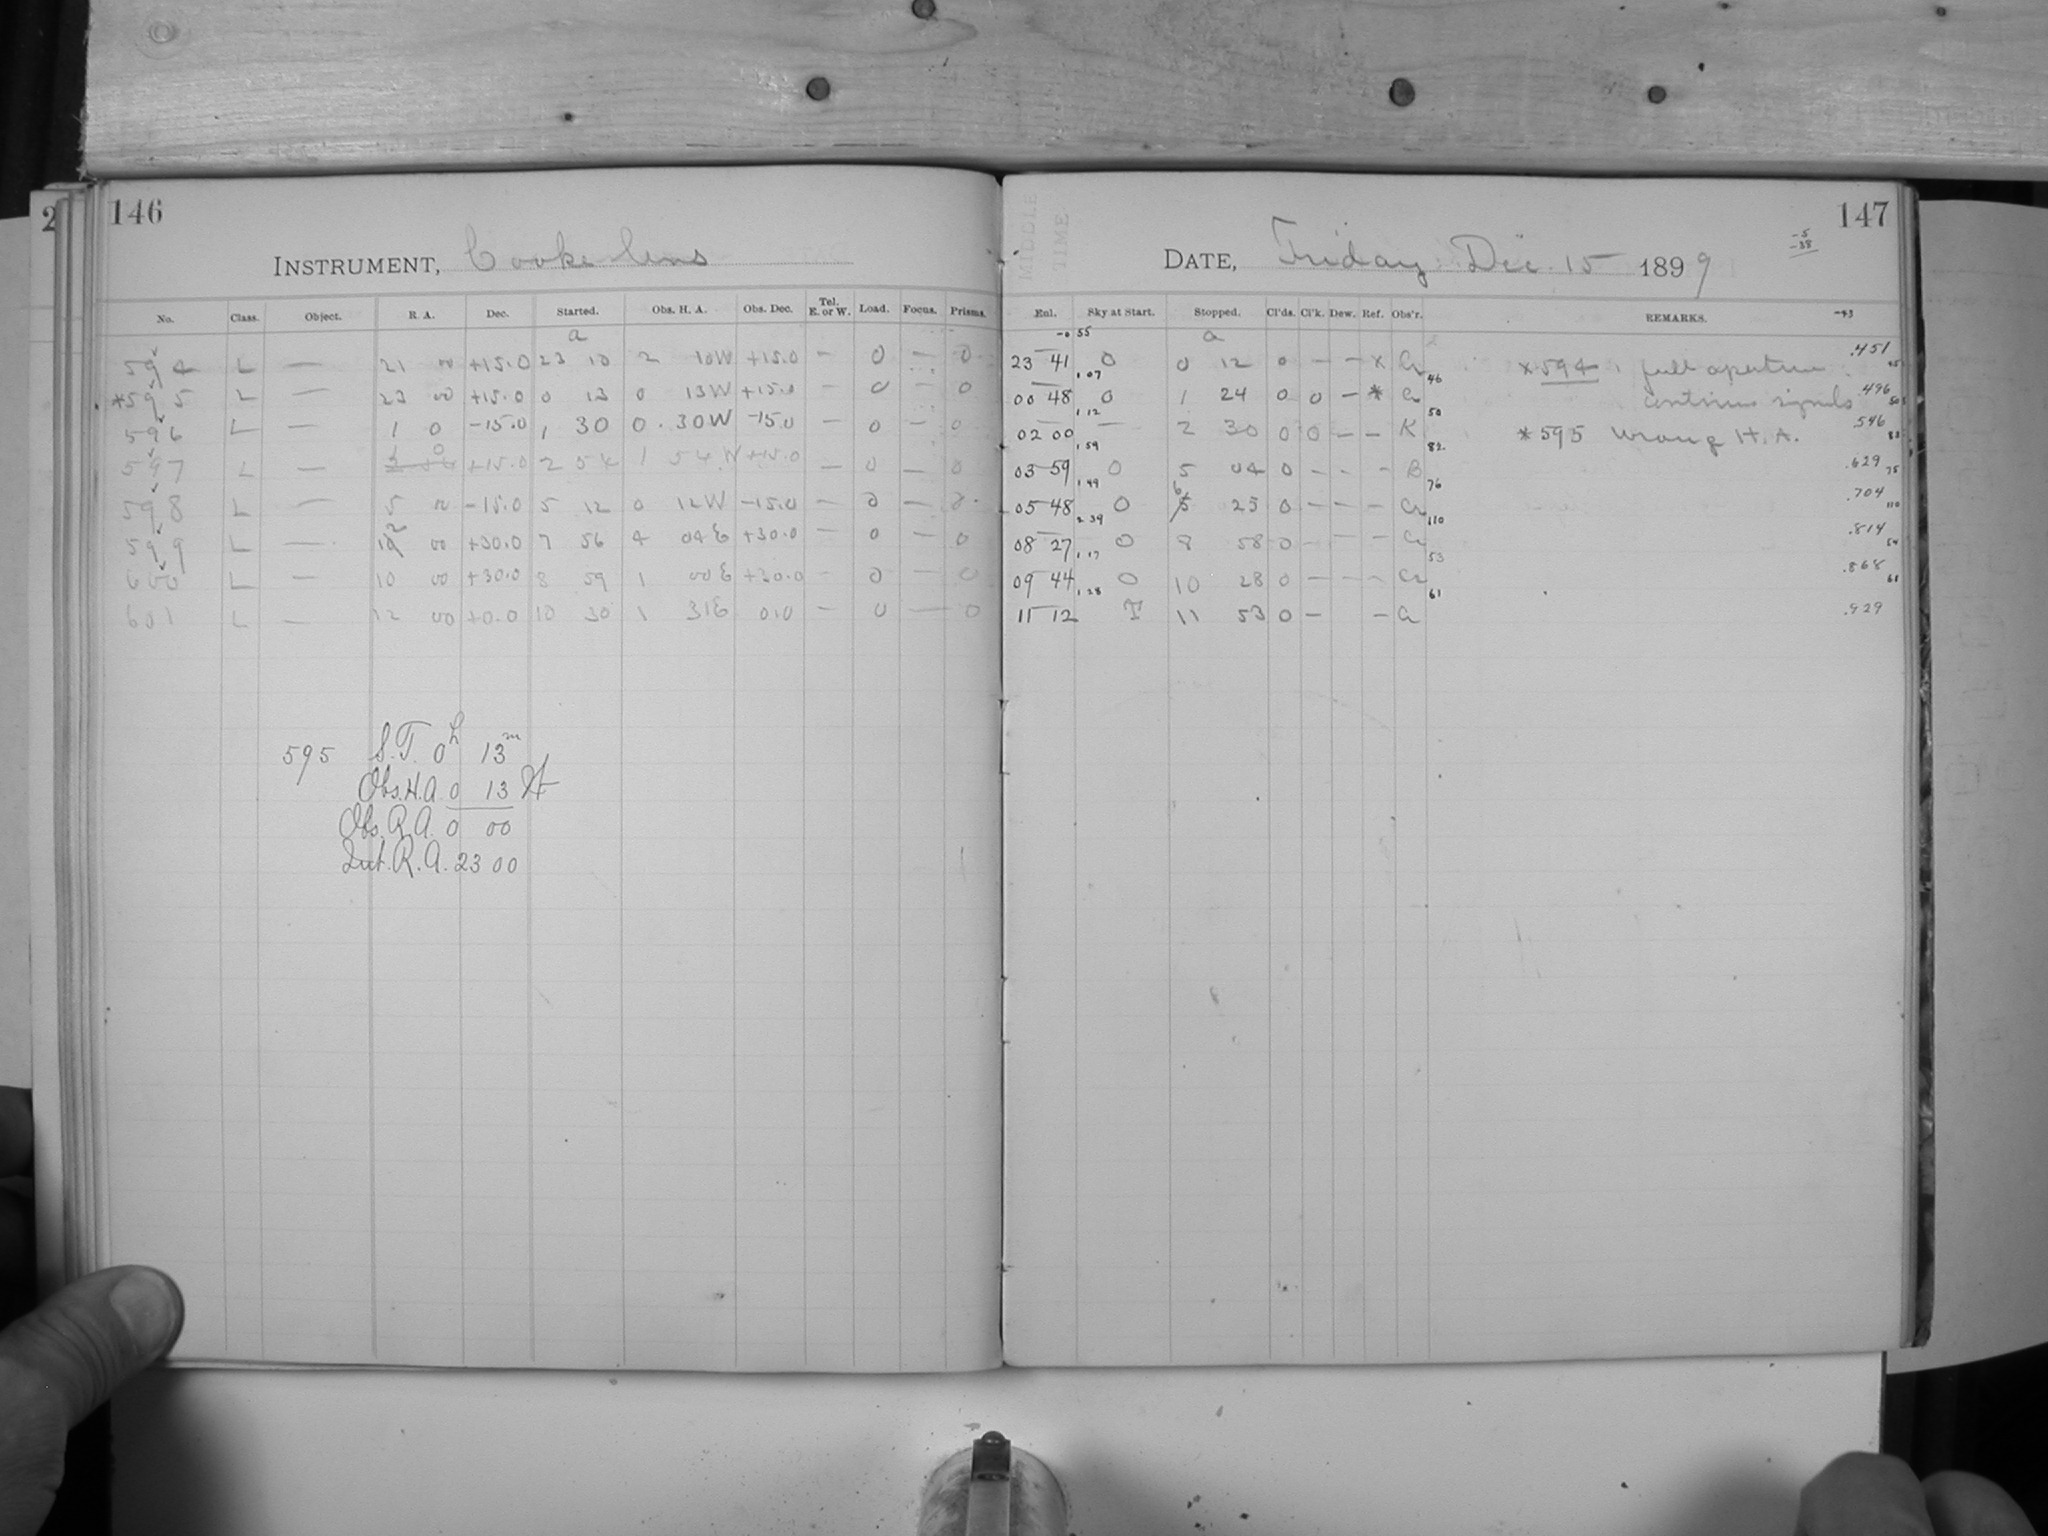 146
INSTRUMENT, Cooke lens
No. Class. Object. R. A. Dec. Started. Obs. H. A. Obs. Dec. Tel. E. or W. Load. Focus. Prisms.
a
594 L — 21 00 +15.0 23 10 2 10W +15.0 — 0 — 0
*595 L — 23 00 +15.0 0 13 0 13W +15.0 — 0 — 0
596 L — 1 0 -15.0 1 30 0 30W -15.0 — 0 — 0
597 L — +15.0 2 54 1 54W +15.0 — 0 — 0
598 L — 5 00 -15.0 5 12 0 12W -15.0 — 0 — 0
599 L — 12 00 +30.0 7 56 4 04E +30.0 — 0 — 0
600 L — 10 00 +30.0 8 59 1 00E +30.0 — 0 — 0
601 L — 12 00 +0.0 10 30 1 31E 0.0 — 0 — 0
595 S.T. 0h 13m
Obs. H.A. 0 13 W
Obs. R.A. 0 00
Int. R.A. 23 00
2
147
MIDDLE TIME
DATE, Friday Dec. 15 1899
-5
-38
Enl. Sky at Start. Stopped. Cl'ds. Cl'k. Dew. Ref. Obs'r. REMARKS. -43
-0 55 a
23 41 0 0 12 0 — — x *594 full aperture .451
1 07 46 45
00 48 0 1 24 0 0 — * continuous signals .496
1 12 50 50
02 00 — 2 30 0 0 — — K *595 wrong H.A. .546
1 59 82 83
03 59 0 5 04 0 — — - B .629
1 49 76 75
05 48 0 6 25 0 — — — .704
2 39 110 110
08 27 0 8 58 0 — — — .814
1 17 53 54
09 44 0 10 28 0 — — — .868
1 28 61 61
11 12 T 11 53 0 — — .929